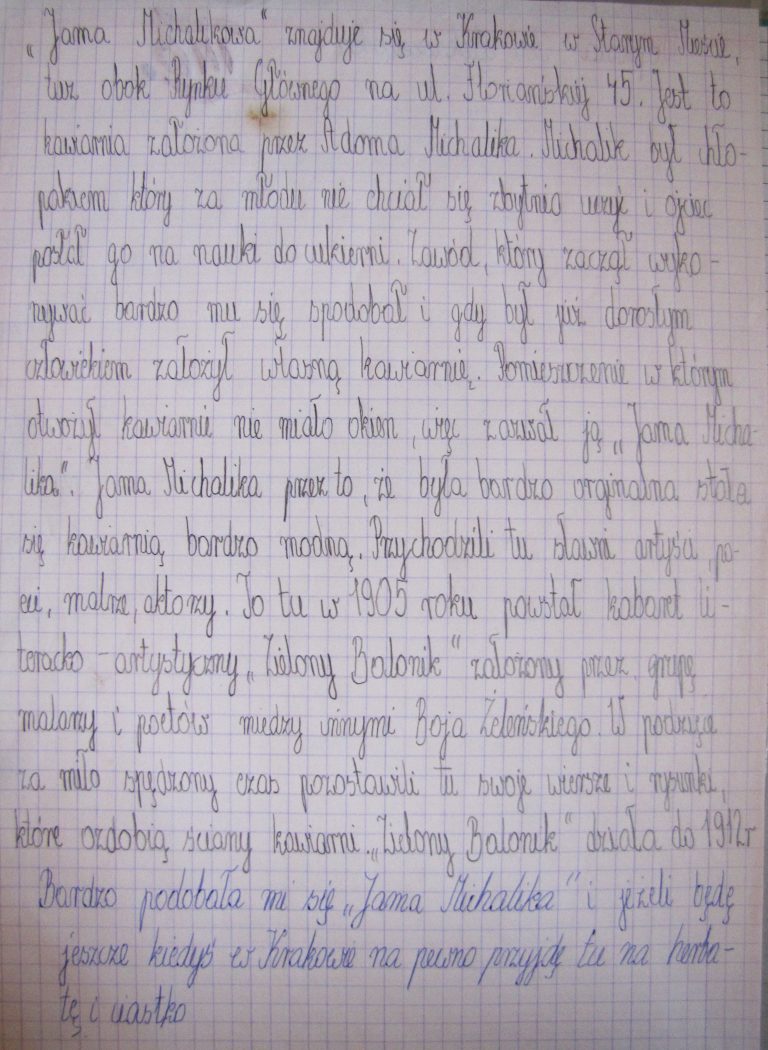 „Jama Michalikowa" znajduje się w Krakowie w Starym Mieście,
tuż obok Rynku Głównego na ul. Floriańskiej 45. Jest to
kawiarnia założona przez Adama Michalika. Michalik był chło-
pakiem który za młodu nie chciał się zbytnio uczyć i ojciec
posłał go na nauki do cukierni. Zawód, który zaczął wyko-
nywać bardzo mu się spodobał i gdy był już dorosłym
człowiekiem założył własną kawiarnię. Pomieszczenie w którym
otwożył kawiarnie nie miało okien, więc zazwał ją „Jama Micha-
lika". Jama Michalika przez to, że była bardzo orginalna stała
się kawiarnią bardzo modną. Przychodzili tu sławni artyści, po-
eci, malrze, aktorzy. To tu w 1905 roku powstał kabaret li-
teracko - artystyczny „Zielony Balonik" założony przez grupę
malarzy i poetów miedzy innymi Boja Żeleńskiego. W podzięce
za miło spędzony czas pozostawili tu swoje wiersze i rysunki,
które ozdobią sciany kawiarni. „Zielony Balonik" działa do 1912r
Bardzo podobała mi się „Jama Michalika" i jeżeli będę
jeszcze kiedyś w Krakowie na pewno przyjdę tu na herba-
tę i ciastko